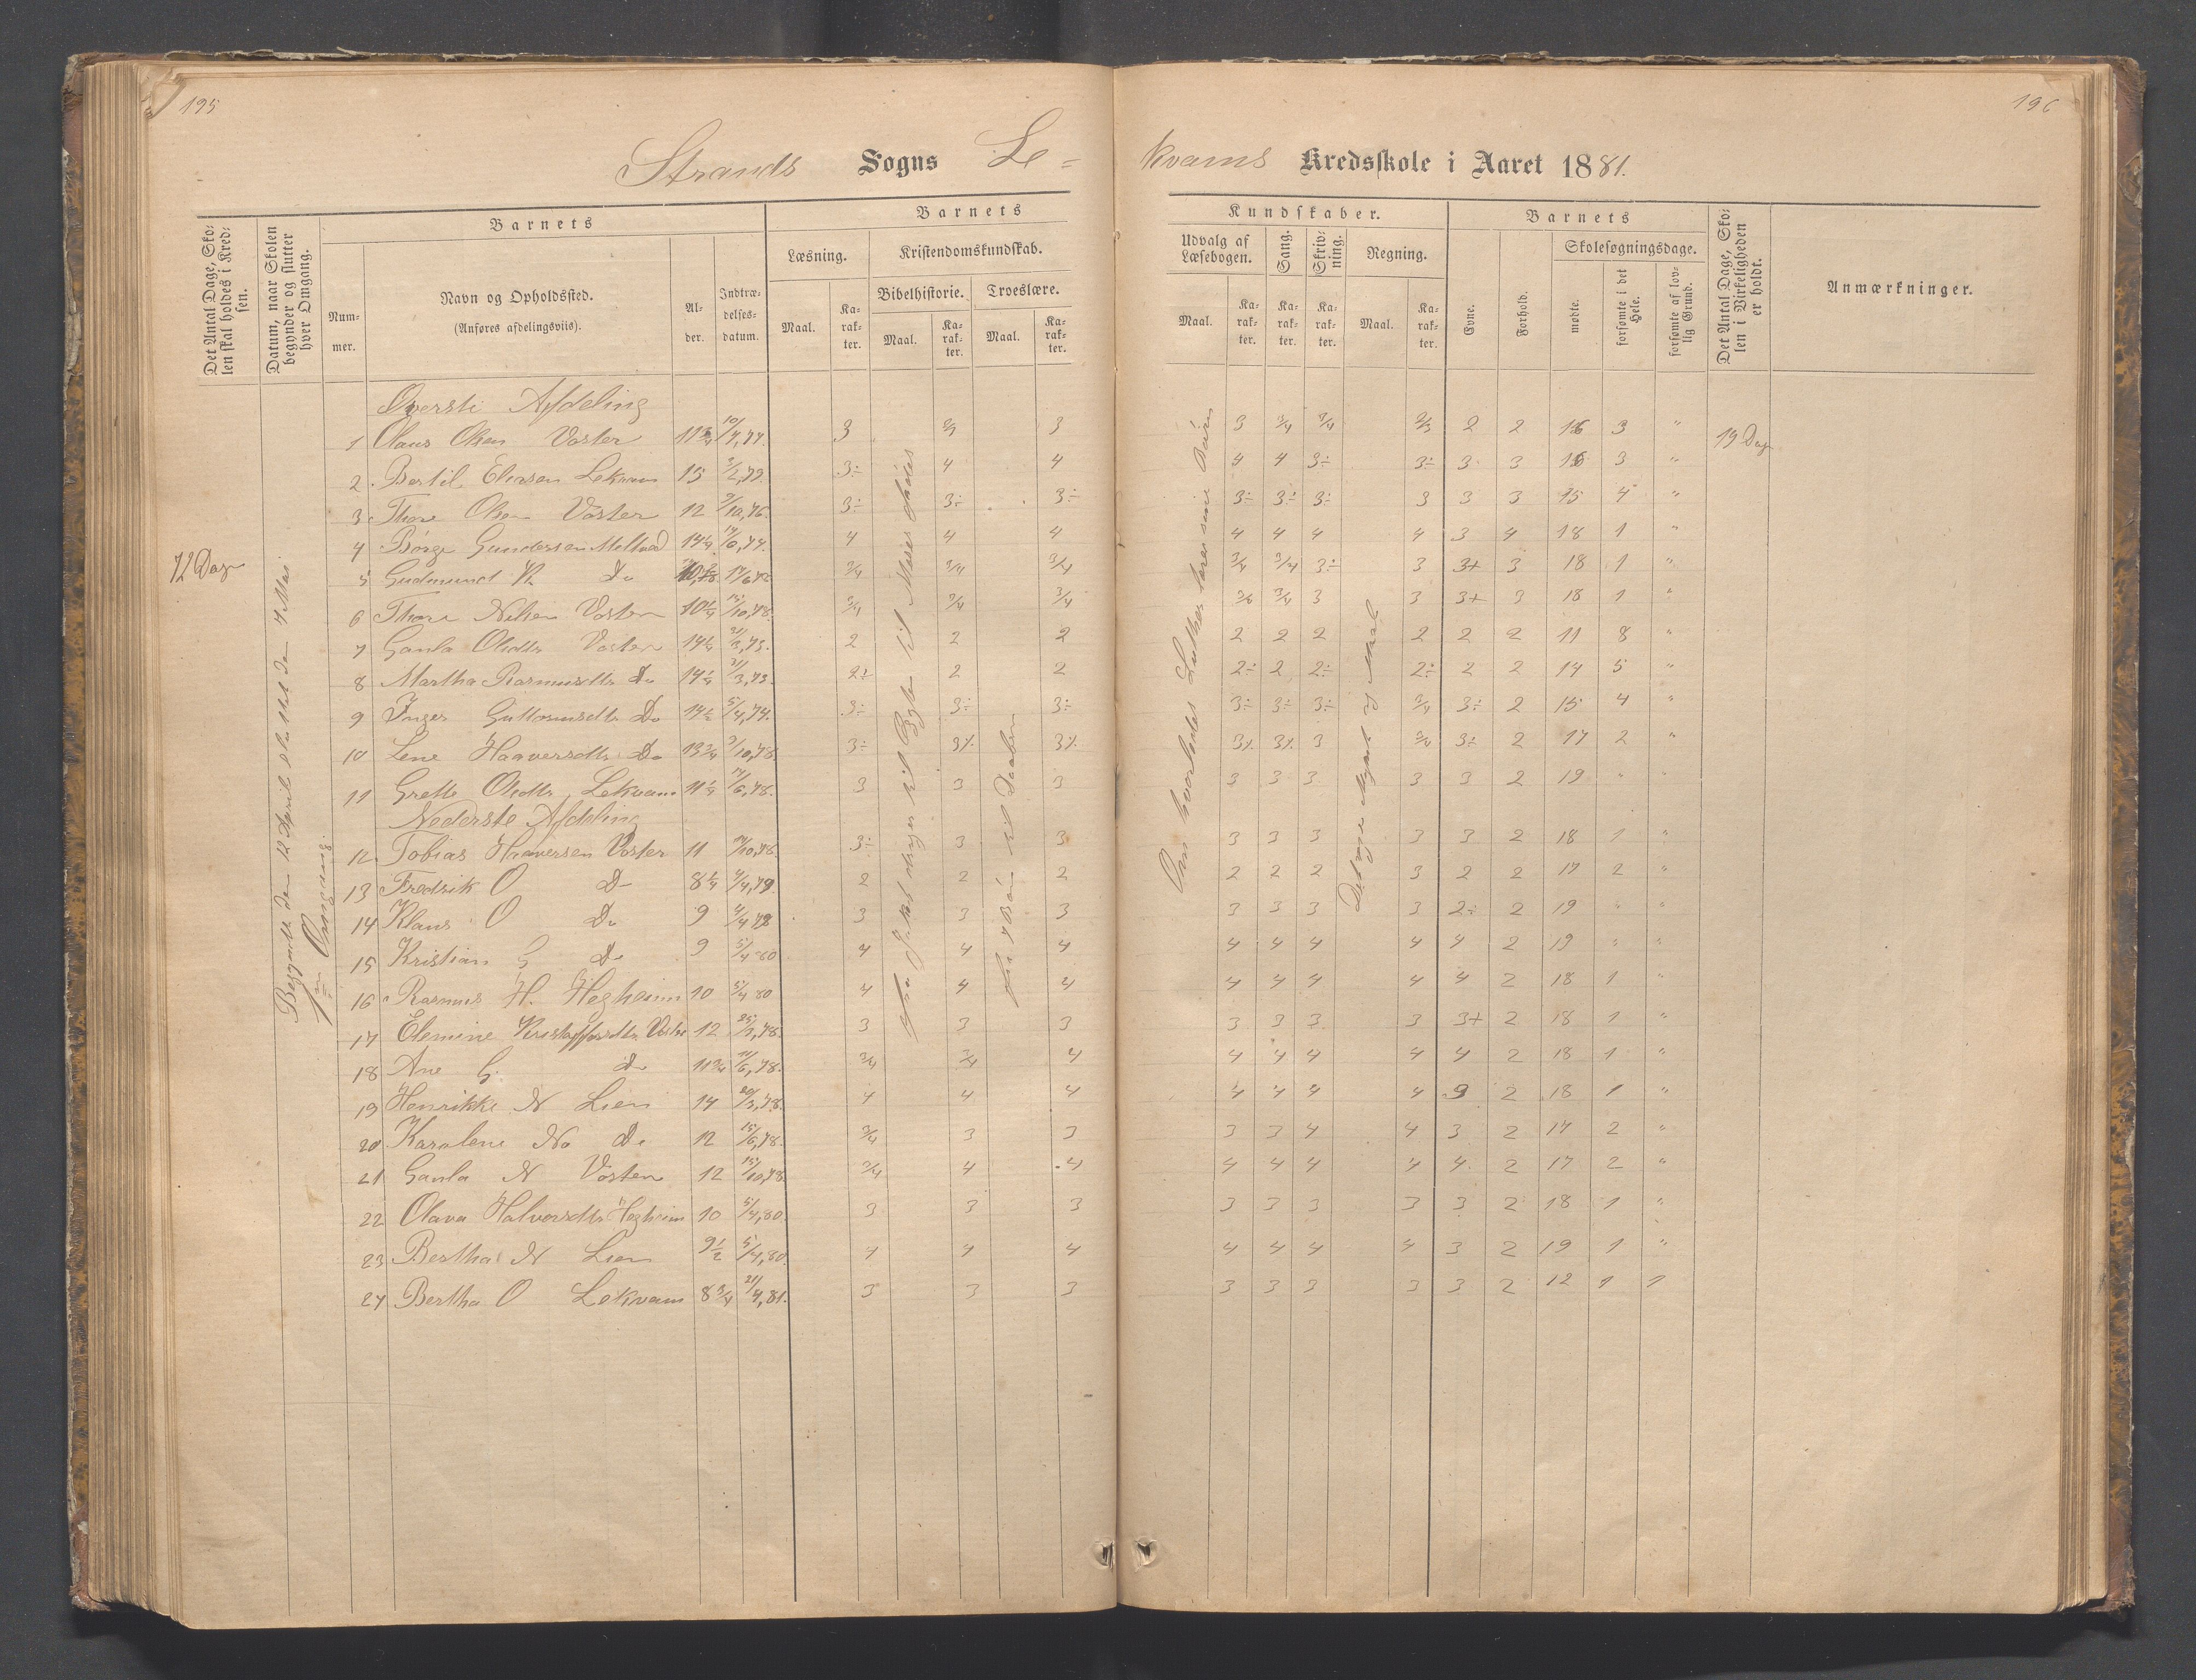 195
196
Strands Sogns Le=
kvams Kredsskole i Aaret 1881.
Det Antal Dage, Sko-
len skal holdes i Kred-
sen.
Datum, naar Skolen
begynder og slutter
hver Omgang.
Barnets
Num-
mer.
Navn og Opholdssted.
(Anføres afdelingsviis).
Al-
der.
Indtræ-
delses-
datum.
Barnets
Læsning.
Maal.
Ka-
rak-
ter.
Kristendomskundskab.
Bibelhistorie.
Maal.
Ka-
rak-
ter.
Troeslære.
Maal.
Ka-
rak-
ter.
Kundskaber.
Udvalg af
Læsebogen.
Maal.
Ka-
rak-
ter.
Sang.
Ka-
rak-
ter.
Skriv-
ning.
Ka-
rak-
ter.
Regning.
Maal.
Ka-
rak-
ter.
Barnets
Evne.
Forhold.
Skolesøgningsdage.
mødte.
forsømte i det
Hele.
forsømte af lov-
lig Grund.
Det Antal Dage, Sko-
len i Virkeligheden
er holdt.
Anmærkninger.
72 Dage
Begyndte den 12 April sluttet den 7 Mai
1ste Omgang
19 Dage
Øverste Afdeling
1 Olaus Olsen Voster 11 3/4 10/4,77. 3 2/3 3 3 3/4 3/4 2/3 2 2 16 3 "
2. Bertil Eliasen Lekvam 15 3/2,73. 3÷ 4 4 4 4 3÷ 3÷ 3 3 16 3 "
3 Thore Olsen Voster 12 9/10,76. 3÷ 3÷ 3÷ 3÷ 3÷ 3÷ 3 3 3 15 4 "
4 Børge Gundersen 14 1/4 4 4 4 4 4 4 4 3 4 18 1 "
5 Gudmund R Do 3/4 3/4 3/4 3/4 3/4 3÷ 3 3+ 3 18 1 "
6 Thore Nilsen Voster 10 1/4 15/10,78. 3/4 3/4 3/4 3/4 3/4 3 3 3+ 3 18 1 "
7 Gaula Olsdtr Voster 14 1/4 31/3,73. 2 2 2 2 2 2 2 2 2 11 8 "
8 Martha Rasmusdtr Do 14 1/4 31/3,73. 2÷ 2 2 2÷ 2 2÷ 2÷ 2 2 14 5 "
9 Inger Guttormsdtr Do 14 1/2 5/4,74. 3÷ 3÷ 3÷ 3÷ 3÷ 3÷ 3/4 3÷ 2 15 4 "
10 Lene Haaversdtr Do 13 3/4 3÷ 3÷ 3÷ 3÷ 3÷ 3 3/4 3÷ 2 17 2 "
11 Grethe Olsdtr Lekvam 11 1/4 14/6,78. 3 3 3 3 3 3 3 3 2 19 " "
Nederste Afdeling
12. Tobias Haaversen Voster 11 3÷ 3 3 3 3 3 3 3 2 18 1 "
13 Fredrik O Do 8 1/4 4/4,79. 2 2 2 2 2 2 3 2 2 17 2 "
14 Klaus O Do 9 4/4 79 3 3 3 3 3 3 3 2÷ 2 19 " "
15 Kristian G Do 9 5/4 80 4 4 4 4 4 4 4 4 2 19 " "
16 Rasmus H. Hegheim 10 5/4 80 4 4 4 4 4 4 4 4 2 18 1 "
17 Elemine Kristoffersdtr Voster 12 25/3,78. 3 3 3 3 3 3 3 3+ 2 18 1 "
18 Ane G. Do 11 3/4 14/6,78. 3/4 3/4 4 4 4 4 4 4 2 18 1 "
19 Henrikke N Lien 14 20/3,78. 4 4 4 4 4 4 4 3 2 18 1 "
20 Karolene No Do 12 15/6,78. 3/4 3 3 3 3 4 4 3 2 17 2 "
21 Gaula N Voster 12 15/10,78 3/4 4 4 4 4 4 4 4 2 17 2 "
22 Olava Halvorsdtr Hegheim 10 5/4,80. 3 3 3 3 3 3 3 3 2 18 1 "
23 Bertha N Lien 9 1/2 5/4,80. 4 4 4 4 4 4 4 3 2 19 1 "
24 Bertha O Lekvam 8 3/4 21/4,81. 3 3 3 3 3 3 3 3 2 12 1 1
til Moses
til Daaben
Om hvorledes Luther lærer sine Børn